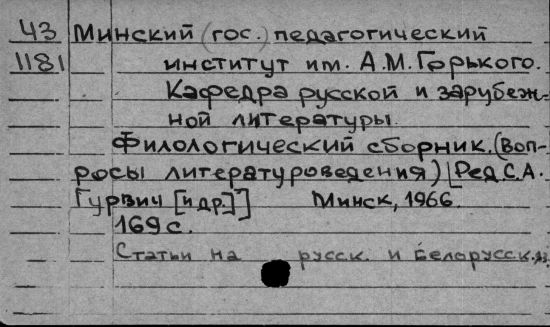 43 Минский (гос.) педагогический
1181 институт им. А.М. Горького.
Кафедра русской и зарубеж-
ной литературы.
Филологический сборник. (Воп-
росы литературоведения) [Ред. С.А.
Гурвич [и др.]] Минск, 1966.
169 с.
Статьи на русск. и белорусск. яз.